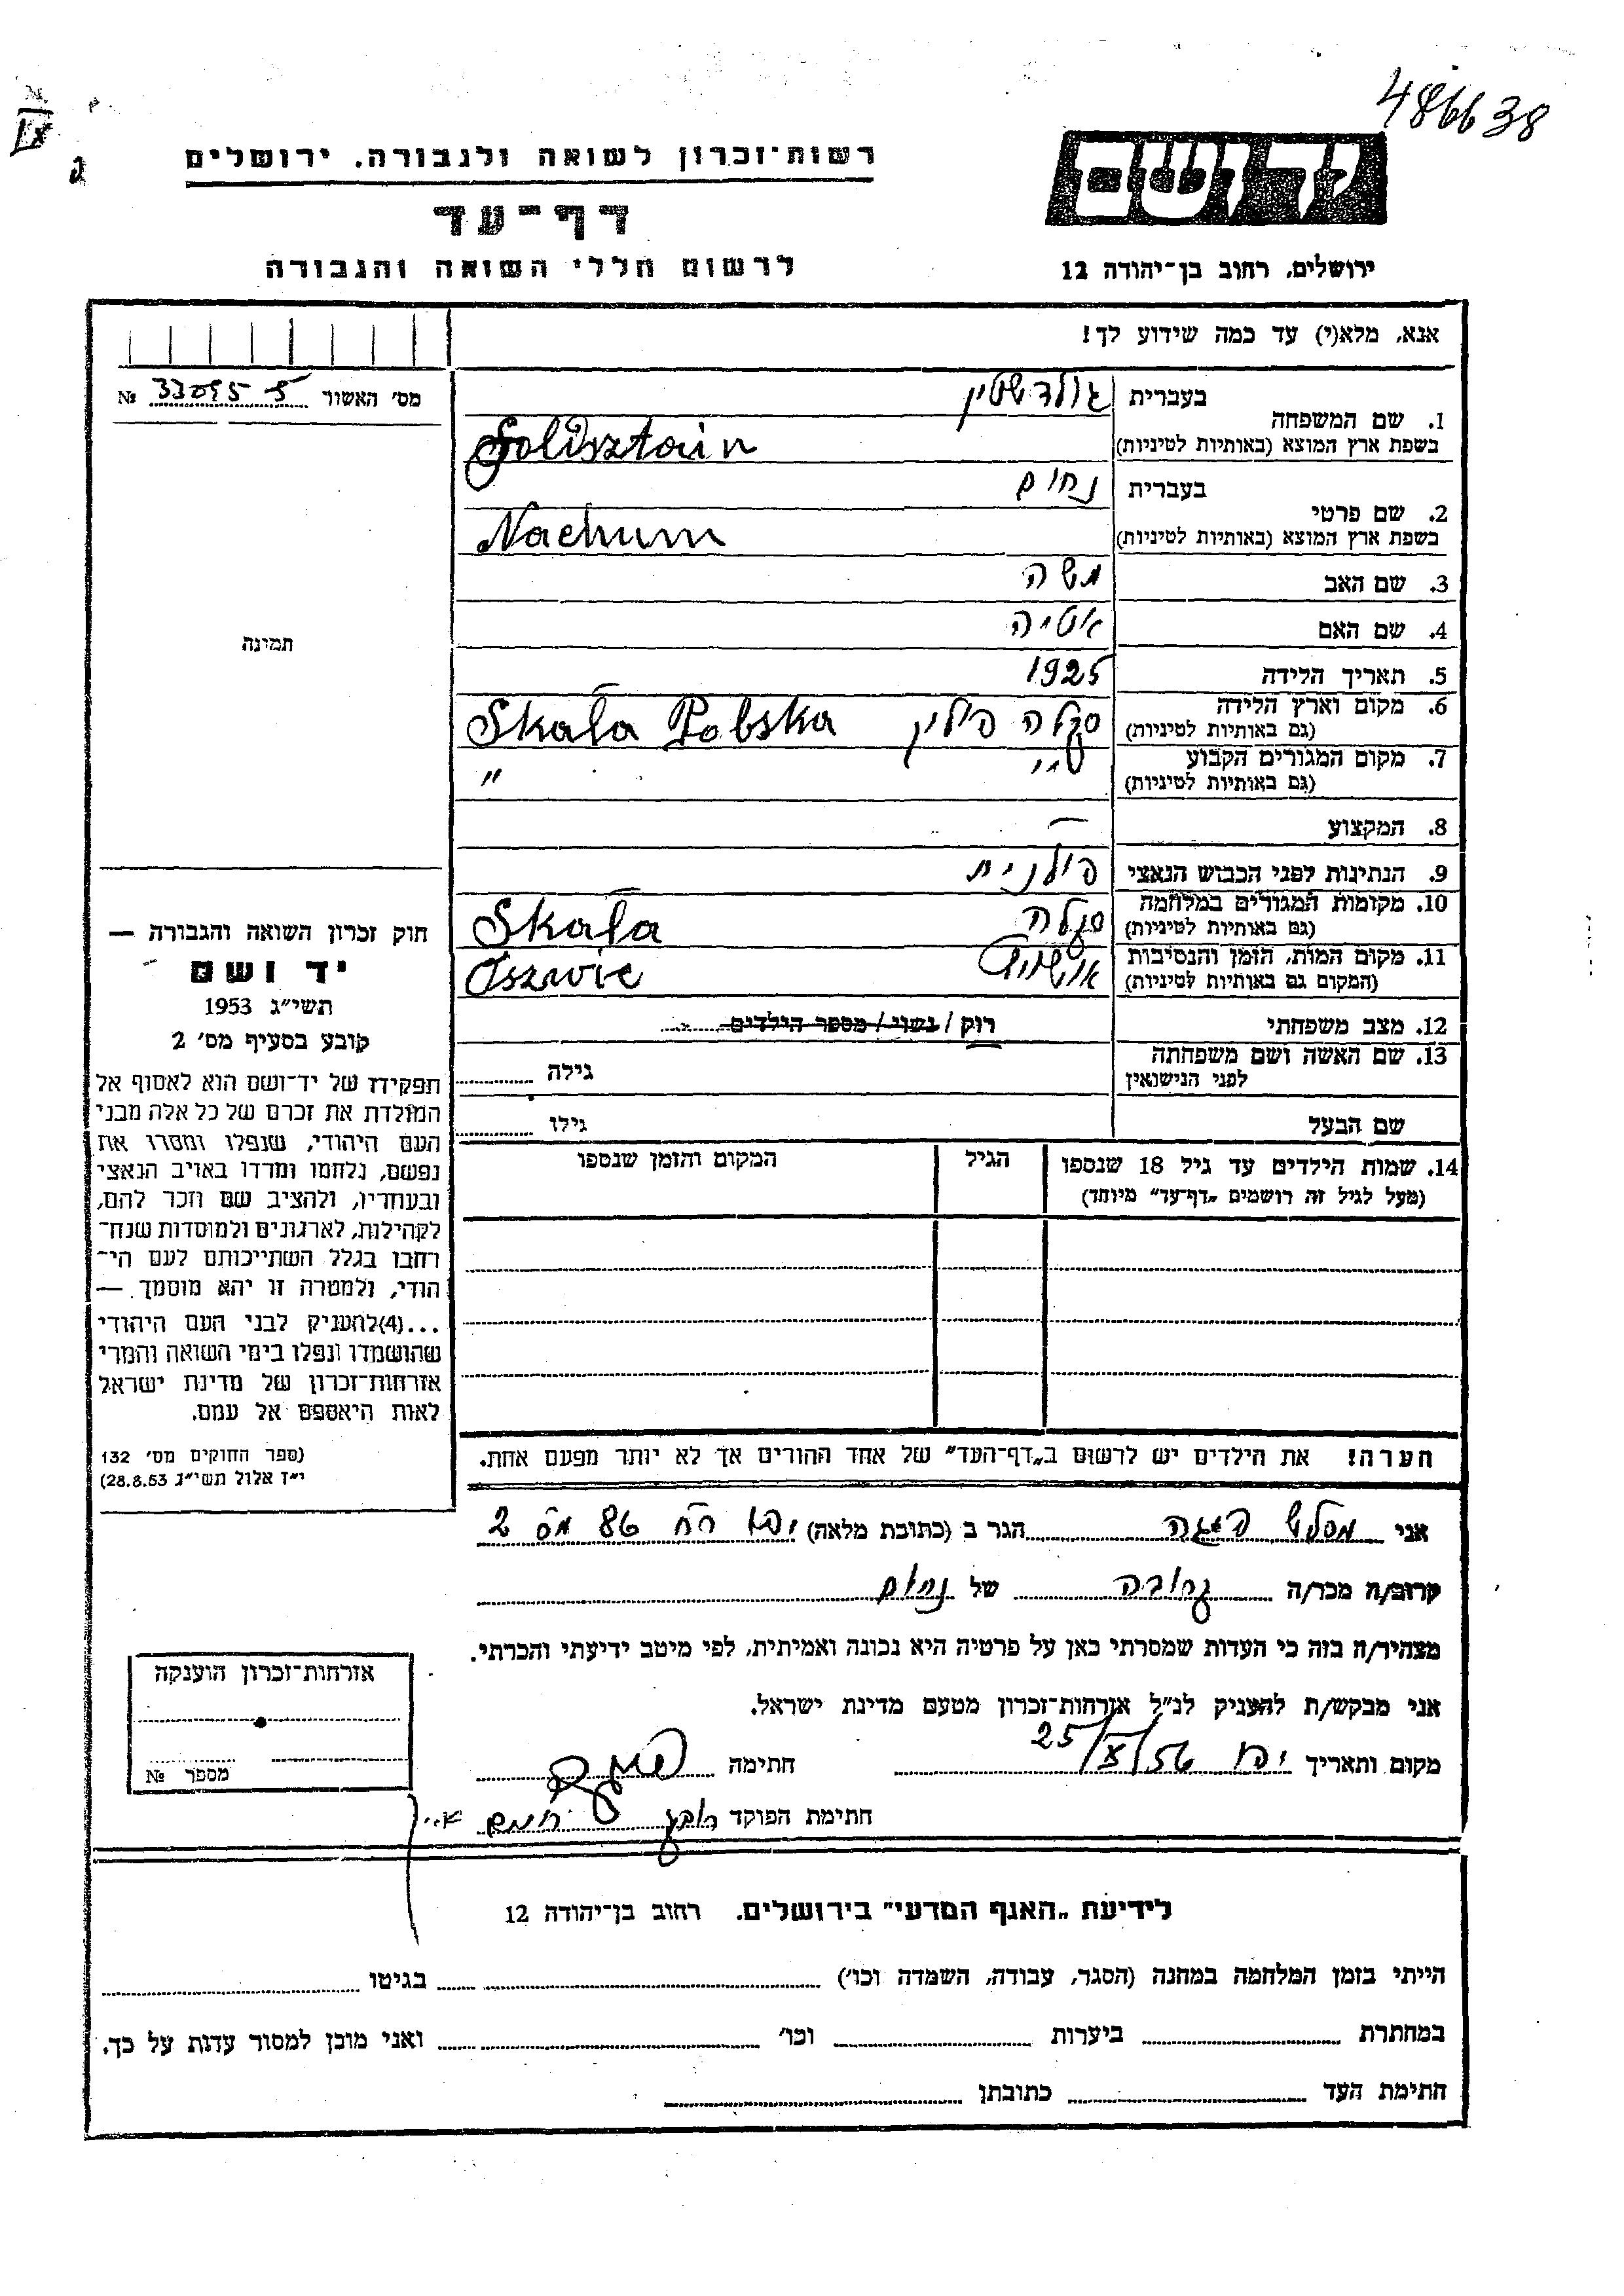 486638
רשות־זכרון לשואה ולגבורה, ירושלים
יד ושם
דף־עד
לרשום חללי השואה והגבורה
ירושלים, רחוב בן־יהודה 12
אנא, מלא(י) עד כמה שידוע לך!
מס׳ האשור №
1. שם המשפחה
בעברית גולדשטין
בשפת ארץ המוצא (באותיות לטיניות) Goldsztain
2. שם פרטי
בעברית נחום
בשפת ארץ המוצא (באותיות לטיניות) Nachum
3. שם האב משה
4. שם האם אטיה
5. תאריך הלידה 1925
6. מקום וארץ הלידה (גם באותיות לטיניות) סקלה פולין Skała Polska
7. מקום המגורים הקבוע (גם באותיות לטיניות) "
8. המקצוע —
9. הנתינות לפני הכבוש הנאצי פולנית
10. מקומות המגורים במלחמה (גם באותיות לטיניות) סקלה Skała
11. מקום המות, הזמן והנסיבות (המקום גם באותיות לטיניות) אושוויץ Oszwic
12. מצב משפחתי רוק / נשוי / מספר הילדים
13. שם האשה ושם משפחתה לפני הנישואין גילה
שם הבעל גילו
14. שמות הילדים עד גיל 18 שנספו הגיל המקום והזמן שנספו
(מעל לגיל זה רושמים „דף־עד” מיוחד)
הערה! את הילדים יש לרשום ב„דף־העד” של אחד ההורים אך לא יותר מפעם אחת.
תמונה
חוק זכרון השואה והגבורה —
יד ושם
תשי״ג 1953
קובע בסעיף מס׳ 2
תפקידו של יד־ושם הוא לאסוף אל
המולדת את זכרם של כל אלה מבני
העם היהודי, שנפלו ומסרו את
נפשם, נלחמו ומרדו באויב הנאצי
ובעוזריו, ולהציב שם וזכר להם,
לקהילות, לארגונים ולמוסדות שנח־
רבו בגלל השתייכותם לעם הי־
הודי, ולמטרה זו יהא מוסמך —
...(4)להעניק לבני העם היהודי
שהושמדו ונפלו בימי השואה והמרי
אזרחות־זכרון של מדינת ישראל
לאות היאספם אל עמם.
(ספר החוקים מס׳ 132
י״ז אלול תשי״ג 28.8.53)
אני הגר ב (כתובת מלאה) יפו 86 2
קרוב/ה מכר/ה קרובה של נחום
מצהיר/ה בזה כי העדות שמסרתי כאן על פרטיה היא נכונה ואמיתית, לפי מיטב ידיעתי והכרתי.
אני מבקש/ת להעניק לנ״ל אזרחות־זכרון מטעם מדינת ישראל.
מקום ותאריך יפו 25/X/56 חתימה
חתימת הפוקד
אזרחות־זכרון הוענקה
מספר №
לידיעת „האגף המדעי” בירושלים, רחוב בן־יהודה 12
הייתי בזמן המלחמה במחנה (הסגר, עבודה, השמדה וכו׳) בגיטו
במחתרת ביערות וכו׳ ואני מוכן למסור עדות על כך.
חתימת העד כתובתו